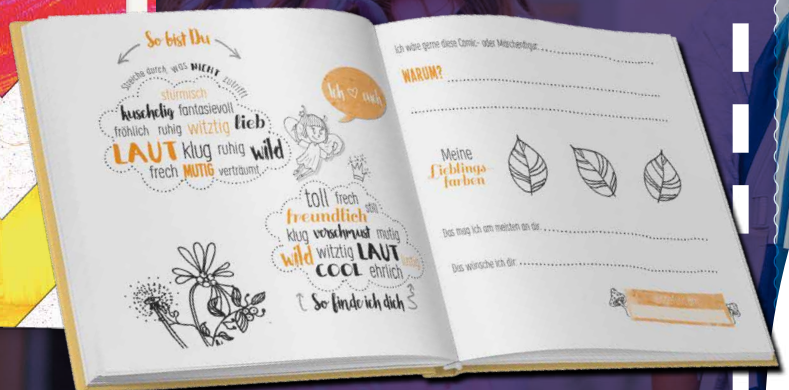 So bist Du
Streiche durch, was NICHT zutrifft
stürmisch
kuschelig fantasievoll
fröhlich ruhig witztig lieb
LAUT klug ruhig wild
frech MUTIG verträumt
Ich ♡ euch
toll frech still
freundlich
klug verschmust mutig
wild witztig LAUT
COOL ehrlich
So finde ich dich
Ich wäre gerne diese Comic- oder Märchenfigur:
WARUM?
Meine
Lieblings-
farben
Das mag ich am meisten an dir:
Das wünsche ich dir: